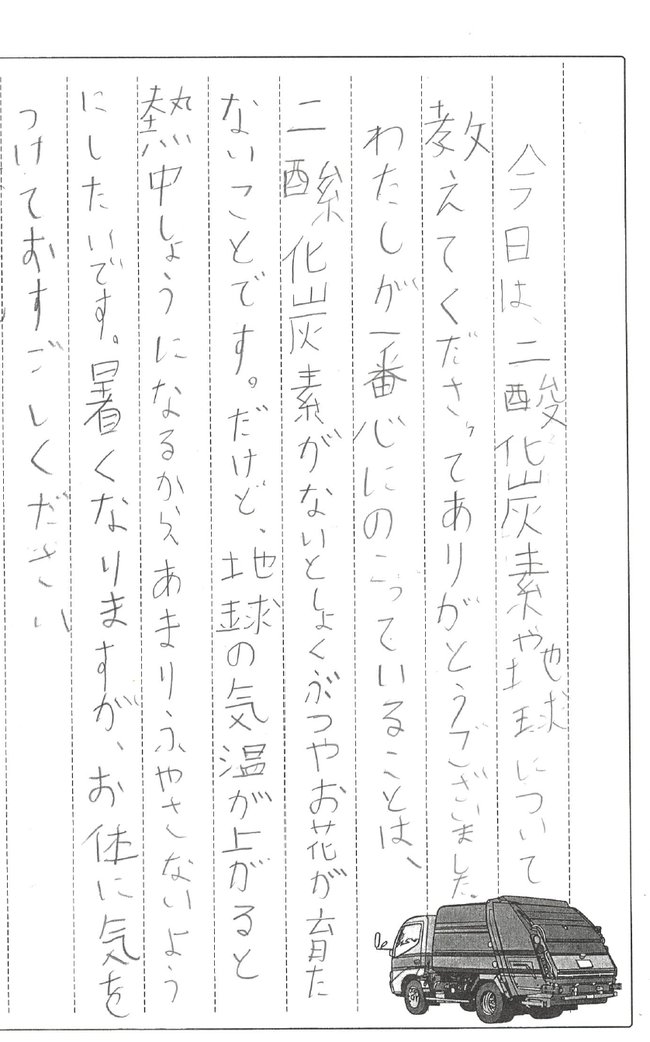 今日は、二酸化炭素や地球について
教えてくださってありがとうございました。
わたしが一番心にのこっていることは、
二酸化炭素がないとしょくぶつやお花が育た
ないことです。だけど、地球の気温が上がると
熱中しょうになるからあまりふやさないよう
にしたいです。暑くなりますが、お体に気を
つけておすごしください